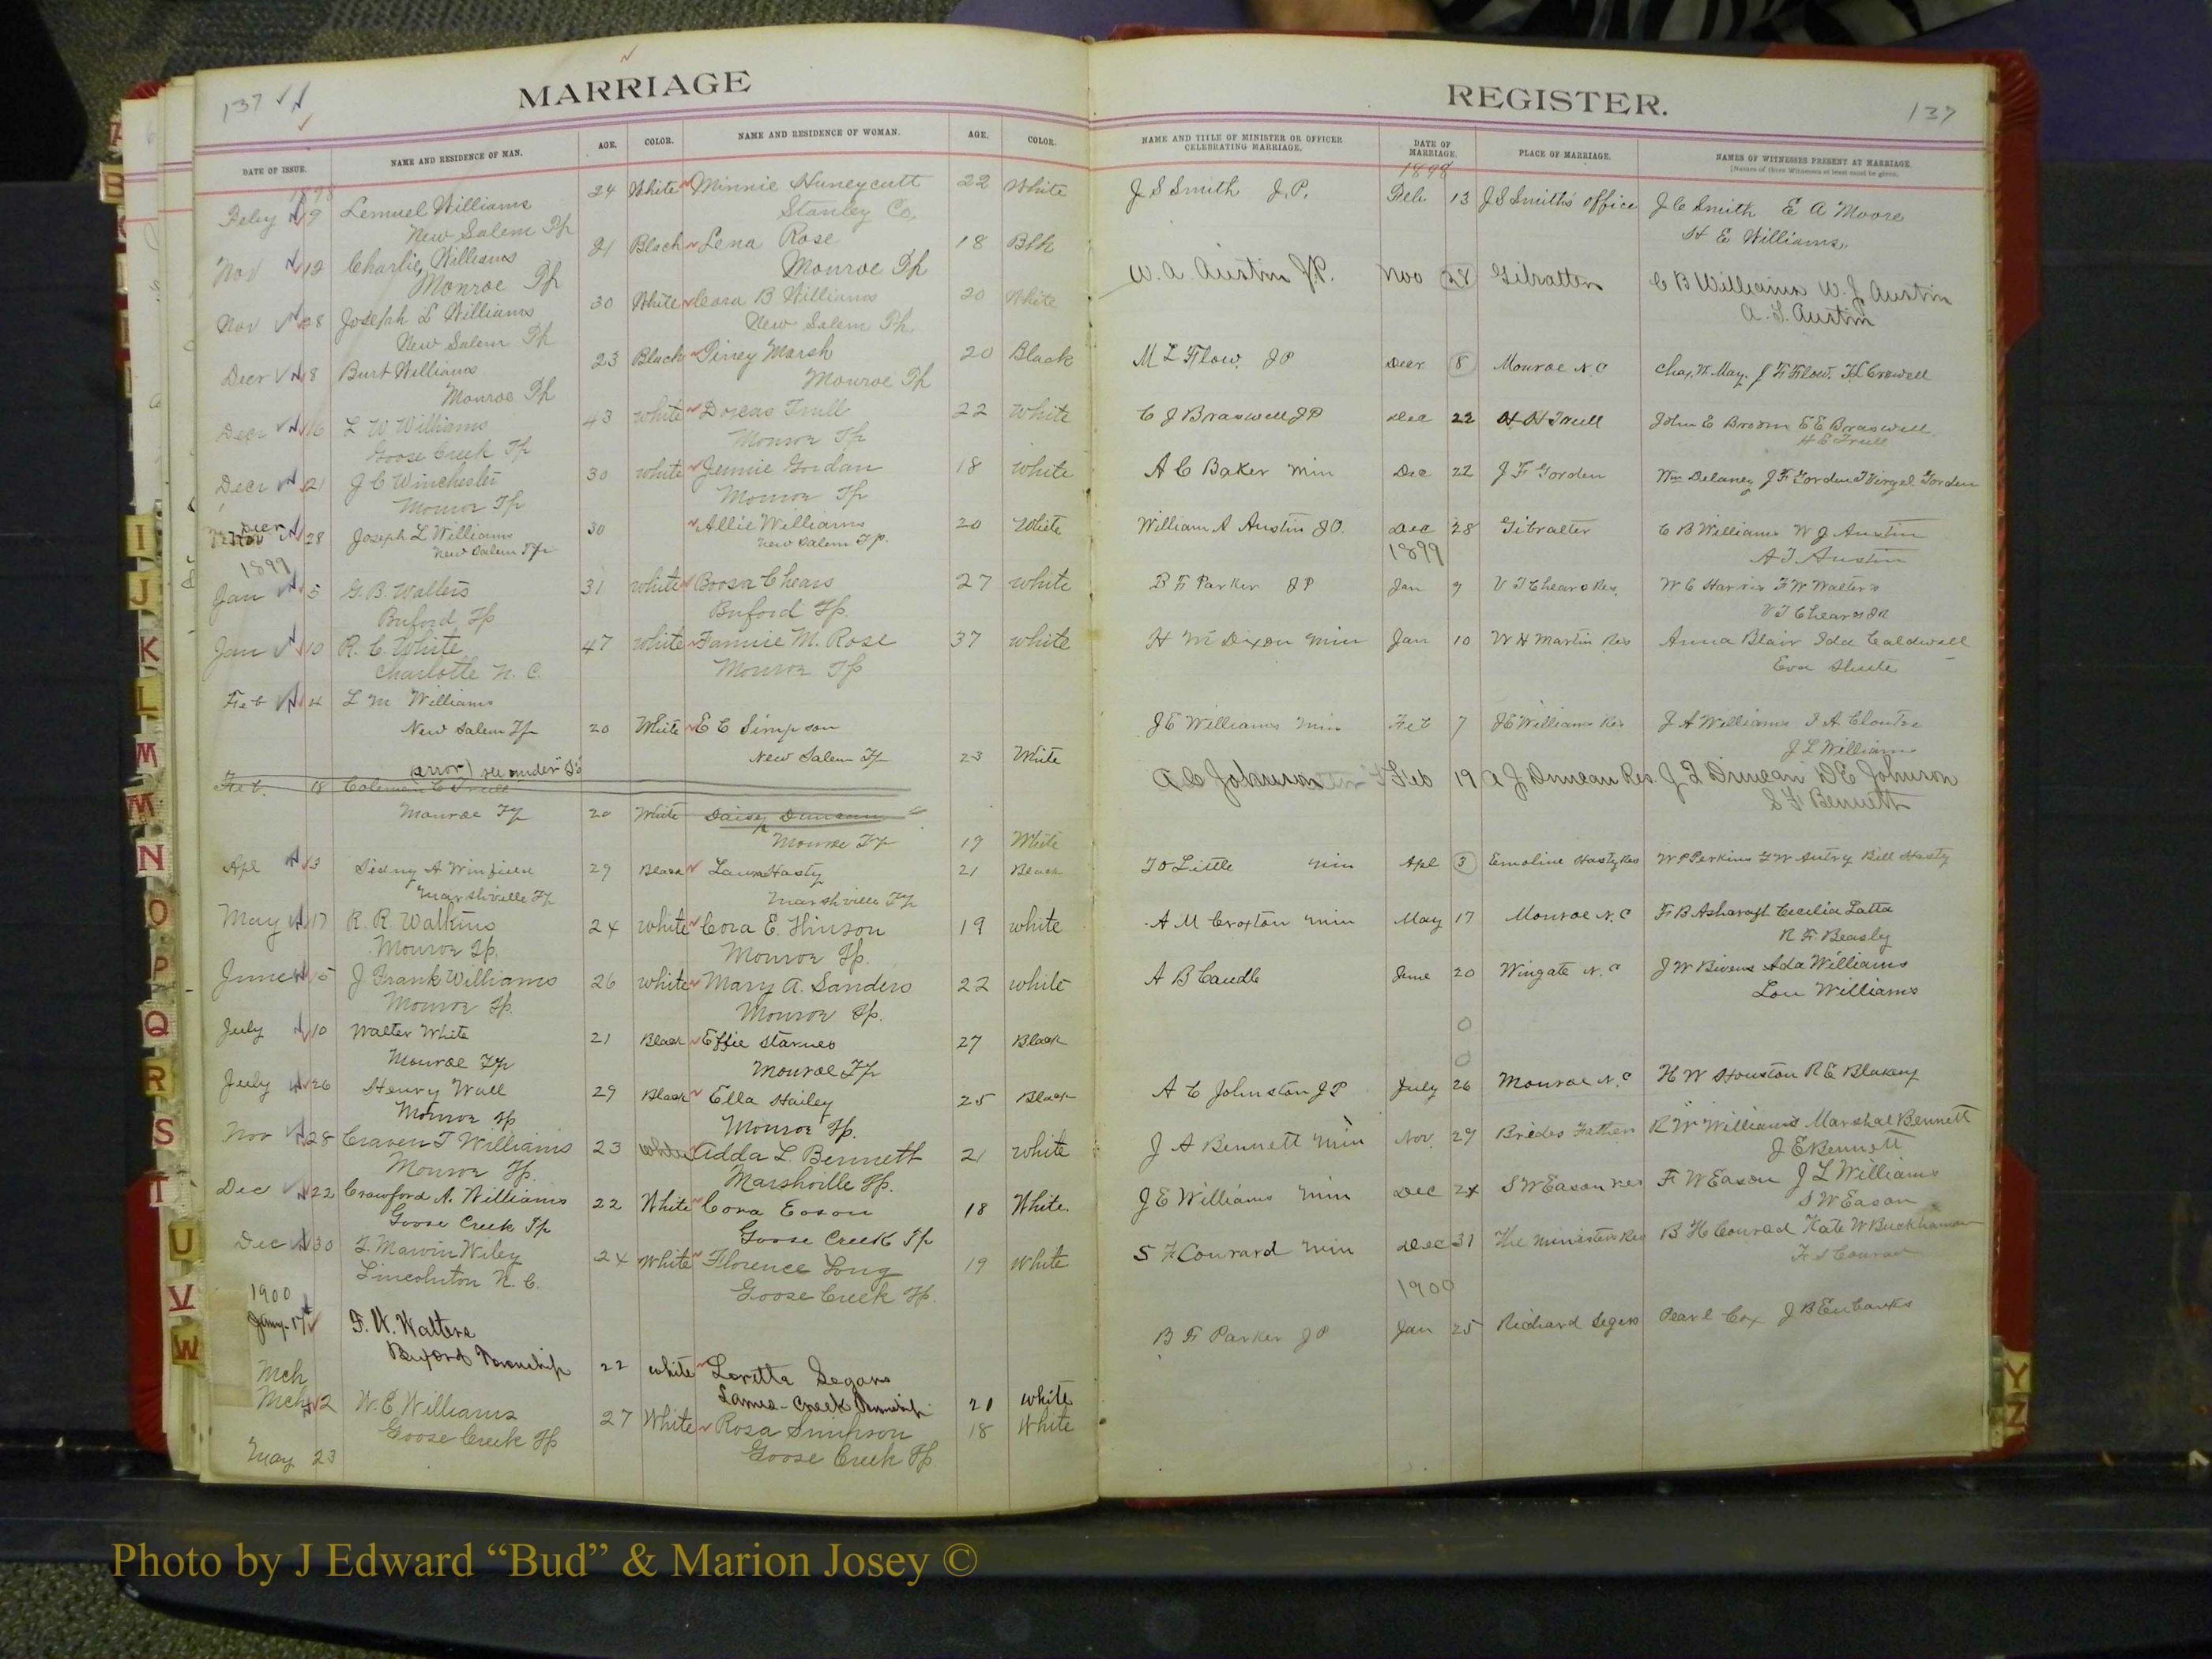 137
MARRIAGE
DATE OF ISSUE. NAME AND RESIDENCE OF MAN. AGE. COLOR. NAME AND RESIDENCE OF WOMAN. AGE. COLOR.
1898
Feby 9 Lemuel Williams 24 White Minnie Huneycutt 22 White
New Salem Tp Stanley Co,
Nov 12 Charlie Williams 21 Black Lena Rose 18 Blk
Monroe Tp Monroe Tp
Nov 28 Joseph L Williams 30 White Cora B Williams 20 White
New Salem Tp New Salem Tp.
Decr 8 Burt Williams 23 Black Piney Marsh 20 Black
Monroe Tp Monroe Tp
Decr 16 L W Williams 43 white Dorcas Trull 22 White
Goose Creek Tp Monroe Tp
Decr 21 J C Winchester 30 white Jennie Gordan 18 white
Monroe Tp Monroe Tp
Decr
Nov 28 Joseph L Williams 30 Allie Williams 20 White
New Salem Tp New Salem Tp.
1899
Jan 5 G. B. Walters 31 white Boosa Chears 27 white
Buford Tp Buford Tp.
Jan 10 R. C. White 47 white Fannie M. Rose 37 white
Charlotte N. C. Monroe Tp
Feb 4 L M Williams
New Salem Tp 20 White E C Simpson
New Salem Tp 23 White
(error) see under "T's
Feb. 18 Coleman C Trull
Monroe Tp 20 White Daisy Duncan
Monroe Tp 19 White
Apl 3 Sidny A Winfield 29 Black Laura Hasty 21 Black
Marshville Tp Marshville Tp
May 17 R. R. Watkins 24 white Cora E. Hinson 19 white
Monroe Tp. Monroe Tp.
June 15 J Frank Williams 26 white Mary A. Sanders 22 white
Monroe Tp. Monroe Tp.
July 10 Walter White 21 Black Effie Starnes 27 Black
Monroe Tp Monroe Tp
July 26 Henry Wall 29 Black Ella Hailey 25 Black
Monroe Tp Monroe Tp.
Nov 28 Craven T Williams 23 white Adda L. Bennett 21 white
Monroe Tp. Marshville Tp.
Dec 22 Crawford A. Williams 22 White Cora Eason 18 White.
Goose Creek Tp Goose Creek Tp
Dec 30 T. Marvin Wiley 24 White Florence Long 19 White
Lincolnton N. C. Goose Creek Tp.
1900
Jany 17 F. W. Walters
Buford Township 22 white Loretta Segars
Mch Lanes-Creek Township 21 white
Mch 12 W. E Williams 27 White Rosa Simpson 18 White
Goose Creek Tp Goose Creek Tp.
May 23
REGISTER.
137
NAME AND TITLE OF MINISTER OR OFFICER CELEBRATING MARRIAGE. DATE OF MARRIAGE. PLACE OF MARRIAGE. NAMES OF WITNESSES PRESENT AT MARRIAGE.
[Names of three Witnesses at least must be given.
1898
J S Smith J.P. Feb 13 J S Smith's office J C Smith E A Moore
H E Williams.
W. A. Austin J.P. Nov 28 Gibralter C B Williams W. J Austin
A. T. Austin
M L Flow. JP Decr 8 Monroe N. C Chas. N. May. J F Flow. H L Crowell
C J Braswell JP Dec 22 H H Trull John E Broom E E Braswell.
H E Trull
A C Baker Min Dec 22 J F Gorden Wm Delaney J F Gorden Virgel Gorden
William A Austin JP. Dec 28 Gibralter C B Williams W J Austin
1899 A T Austin
B F Parker JP Jan 9 V T Chears Res. W C Harris F W Walters
V T Chears JR
H M Dixon Min Jan 10 W H Martin Res Anna Blair Ida Caldwell
Eva Shute
J E Williams Min Feb 7 J E Williams Res J A Williams
J L Williams
A C Johnson Feb 19 A J Duncan Res. J Q Duncan D E Johnson
S F Bennett
Little Min Apl 3 Emoline Hasty Res W P Perkins G W Autry Bill Hasty
A M Croxton Min May 17 Monroe N. C F B Ashcraft Cecilia Latta
R F. Beasly
A B Caudle June 20 Wingate N. C J W Bivens Ada Williams
Lou Williams
0
0
A C Johnston JP July 26 Monroe N. C H W Houston R E Blakeny
J A Bennett Min Nov. 29 Brides Father R W Williams Marshal Bennett
J E Bennett
J E Williams Min Dec 24 S W Eason Res F W Eason J L Williams
S W Eason
S F Conrard Min Dec 31 The ministers Res B H Conrad Kate W Buckhanan
F S Conrad
1900
B F Parker JP Jan 25 Richard Segers Pearl Cox J B Eubanks
A
B
I
J
K
L
M
M
N
O
P
Q
R
S
T
U
V
W
Y
Z
Photo by J Edward “Bud” & Marion Josey ©